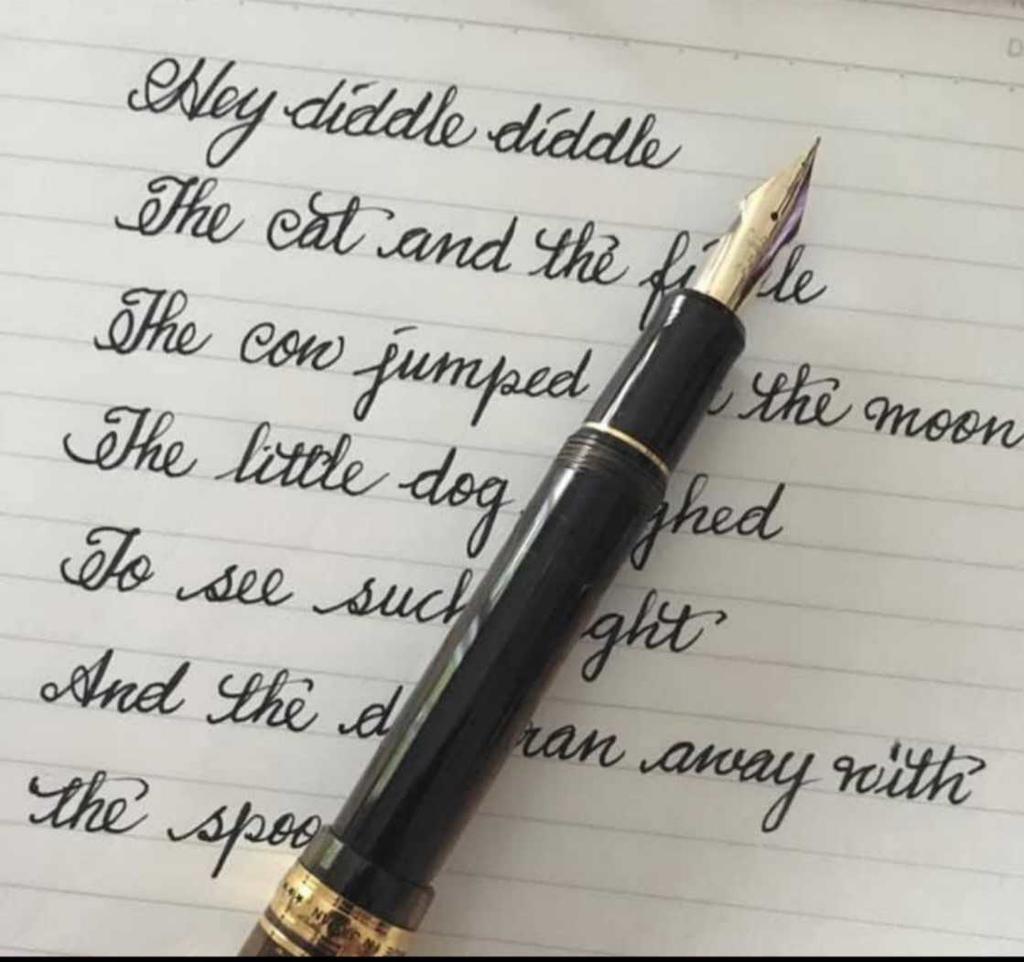 Hey diddle diddle
The cat and the
The cow jumped the moon
The little dog
To see
And the ran away with
the